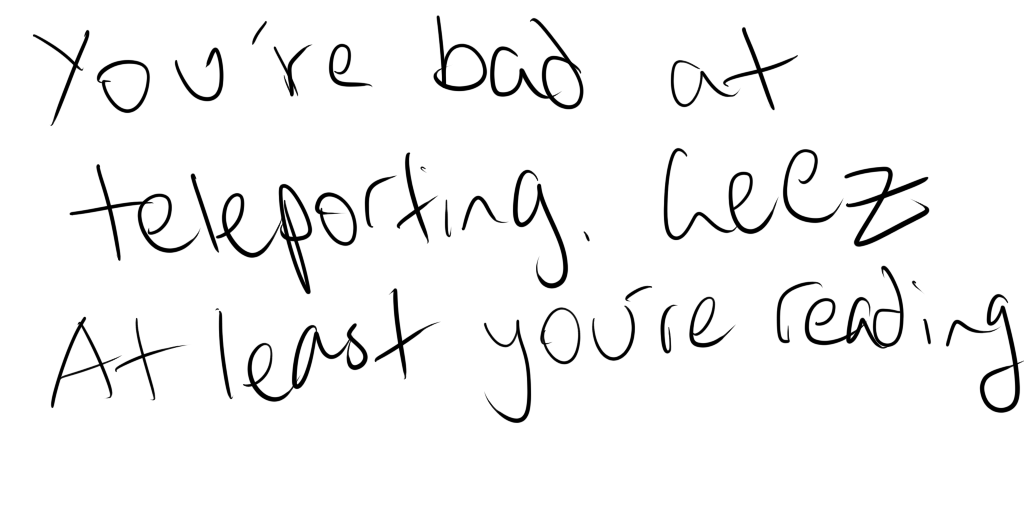 You're bad at
teleporting. Geez
At least you're reading